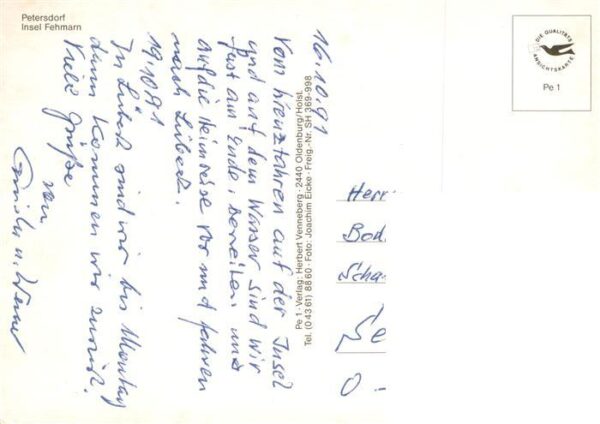 Petersdorf
Insel Fehmarn
16.10.91
Vom Kreuzfahren auf der Insel
und auf dem Wasser sind wir
fast am Ende, bereiten uns
auf die Heimreise vor und fahren
nach Lübeck.
19.10.91
In Lübeck sind wir bis Montag
dann kommen wir zurück.
Viele Grüße
von
u. Werner
Pe 1 · Verlag: Herbert Venneberg · 2440 Oldenburg/Holst.
Tel. (0 43 61) 88 60 · Foto: Joachim Eicke · Freig.-Nr. SH 369-998
DIE QUALITÄTS
ANSICHTSKARTE
Pe 1
Herr
Bod
Scha
Se
O -